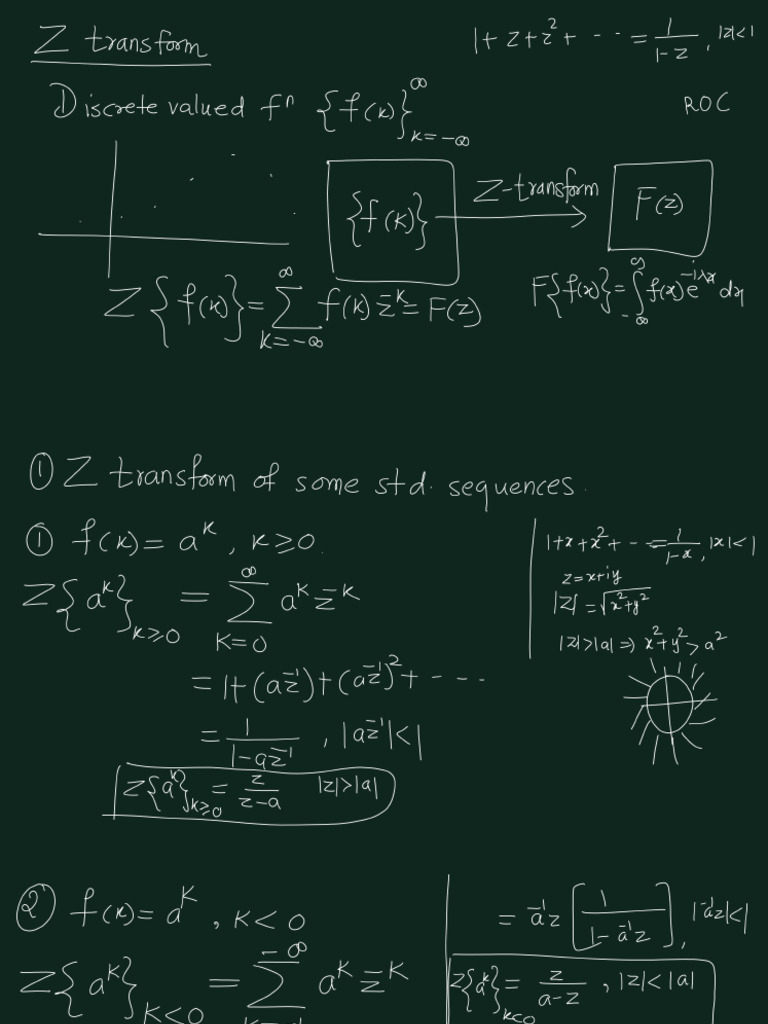 Z transform
1 + z + z² + ⋯ = 1/(1-z), |z|<1
Discrete valued fⁿ {f(k)}_{k=-∞}^{∞}
ROC
{f(k)} Z-transform F(z)
Z{f(k)} = Σ_{k=-∞}^{∞} f(k) z^{-k} = F(z)
F{f(x)} = ∫_{-∞}^{∞} f(x) e^{-iλx} dx
① Z transform of some std. sequences.
① f(k) = a^k, k≥0.
Z{a^k}_{k≥0} = Σ_{k=0}^{∞} a^k z^{-k}
= 1 + (az^{-1}) + (az^{-1})² + ⋯
= 1/(1-az^{-1}), |az^{-1}|<1
Z{a^k}_{k≥0} = z/(z-a) |z|>|a|
1 + x + x² + ⋯ = 1/(1-x), |x|<1
z = x+iy
|z| = √(x²+y²)
|z|>|a| ⇒ x²+y²>a²
② f(x) = a^k, k<0
Z{a^k}_{k<0} = Σ^{-∞} a^k z^{-k}
= a^{-1}z [1/(1-a^{-1}z)], |a^{-1}z|<1
Z{a^k}_{k<0} = z/(a-z), |z|<|a|